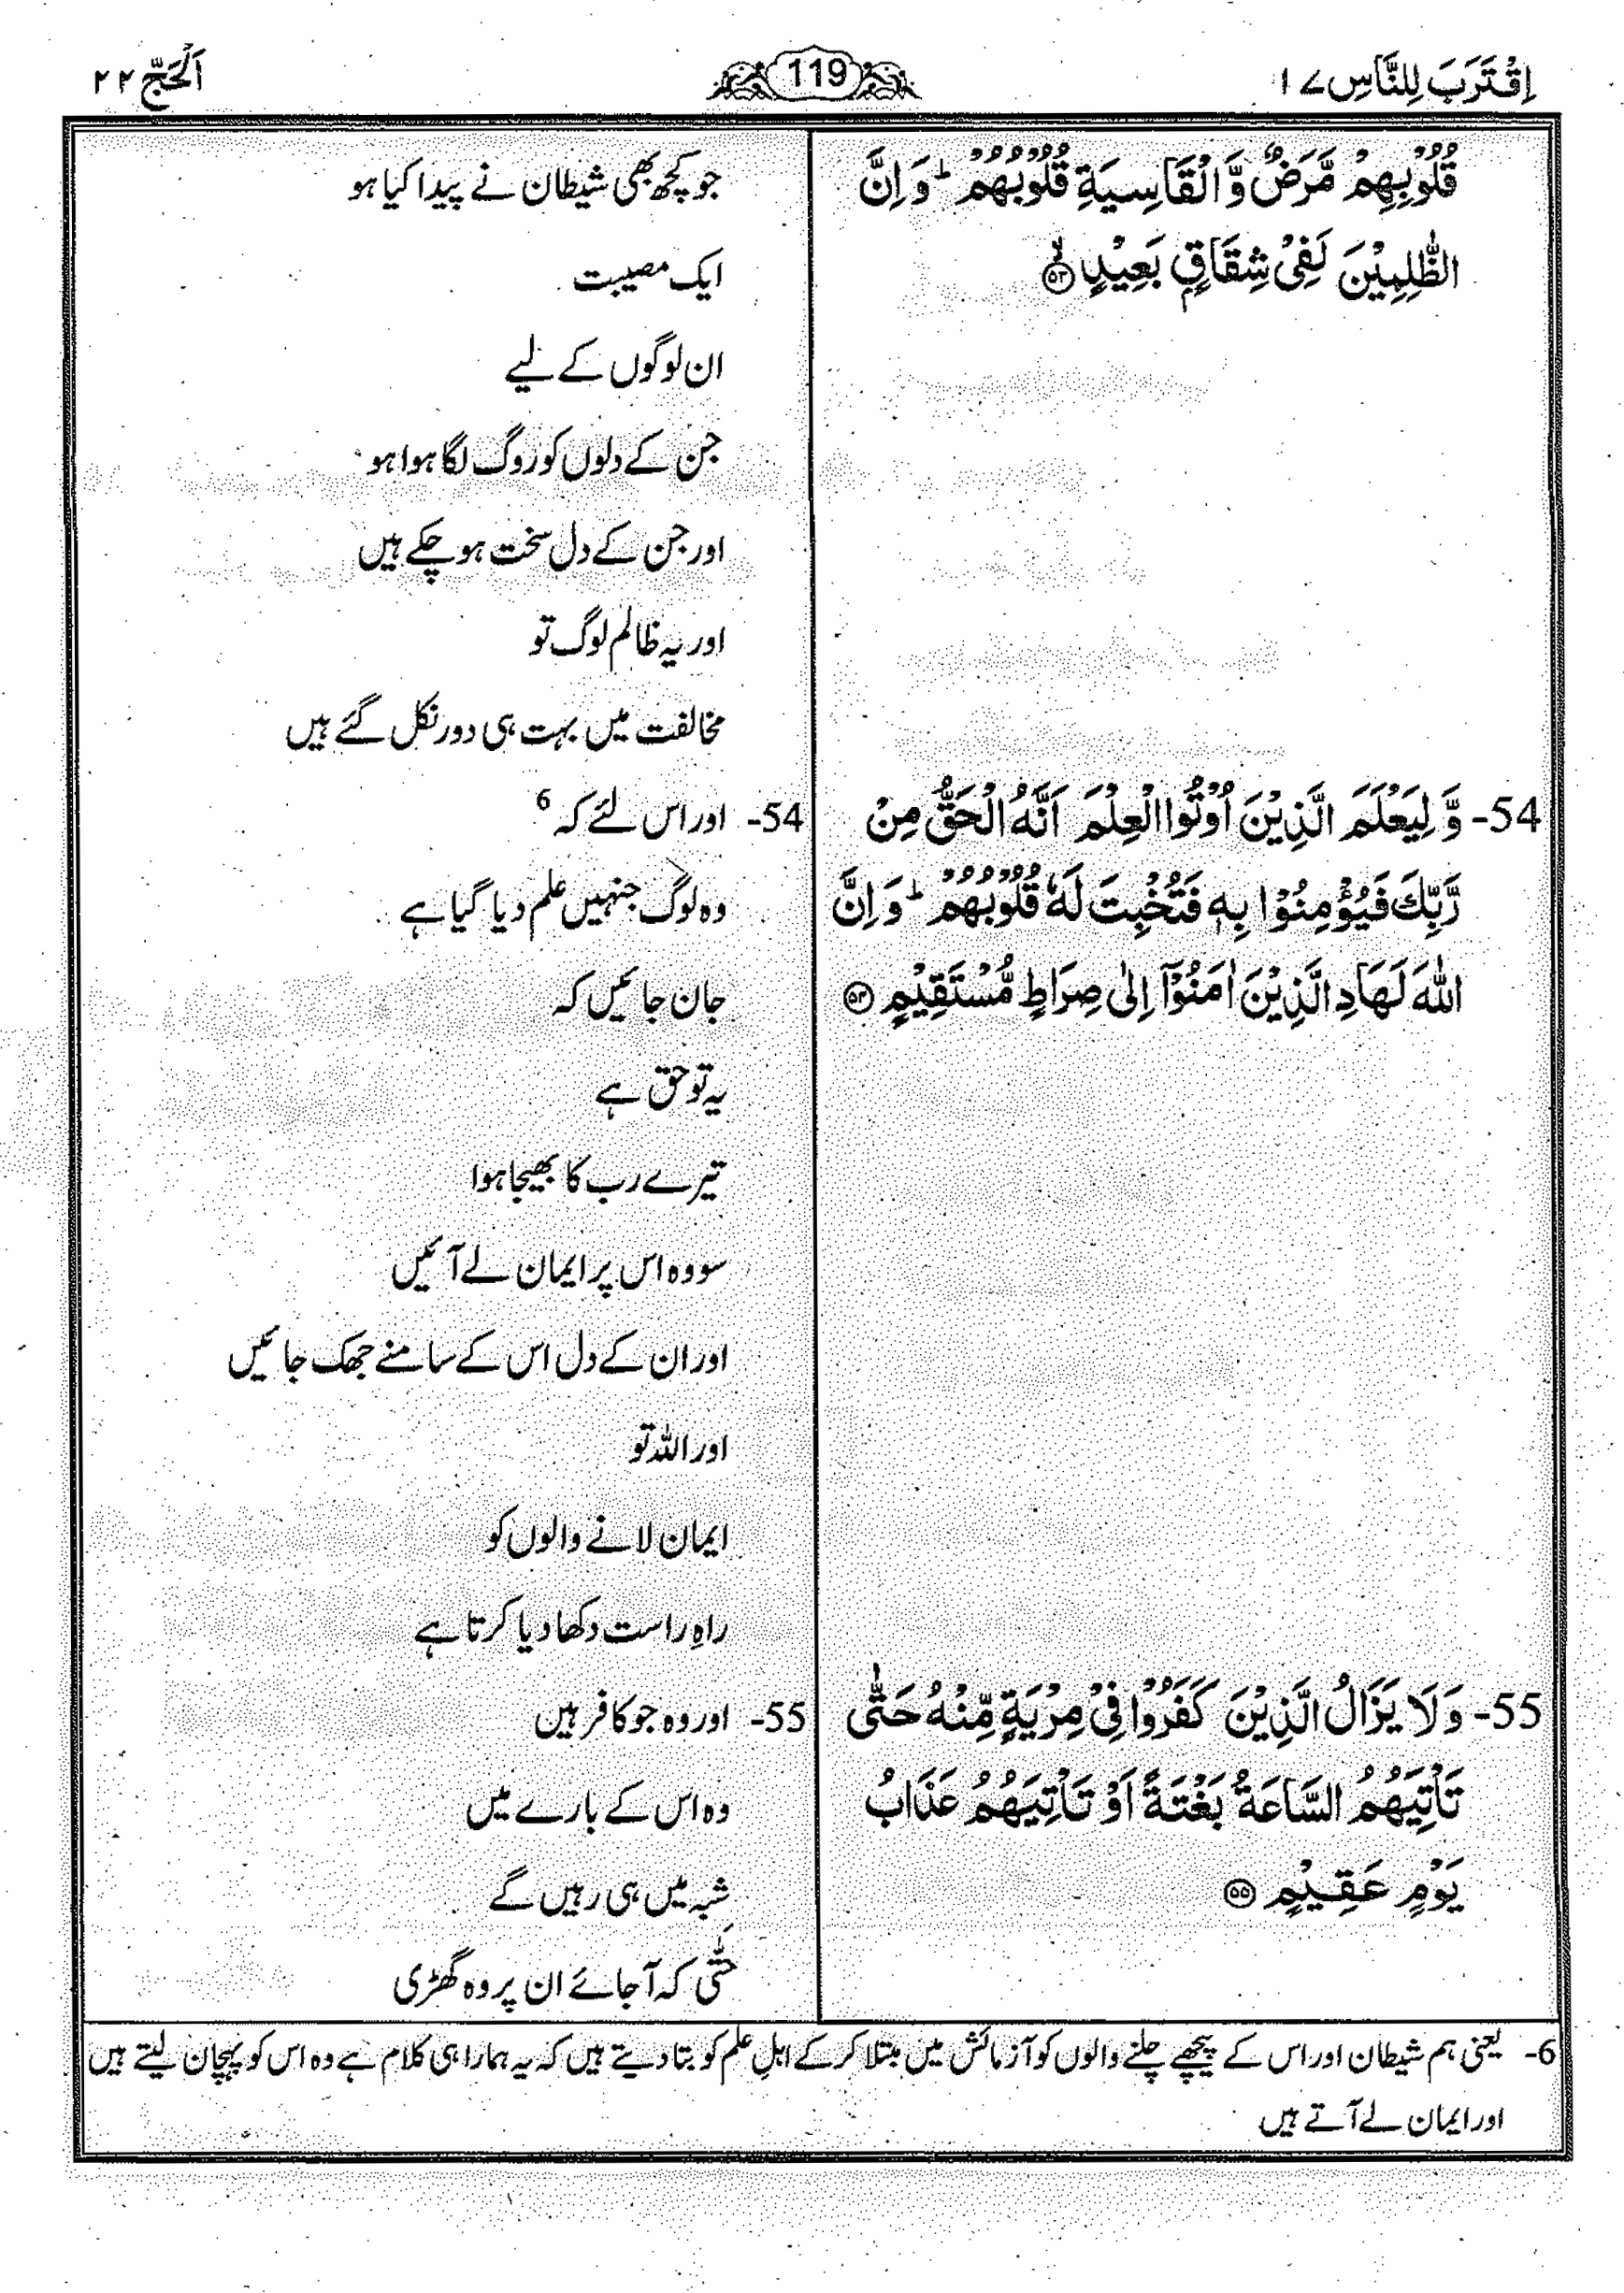 اِقْتَرَبَ لِلنَّاسِ ۱۷
119
اَلْحَجّ ۲۲
قُلُوْبِهِمْ مَّرَضٌ وَّ الْقَاسِيَةِ قُلُوْبُهُمْ ؕ وَ اِنَّ
الظّٰلِمِيْنَ لَفِيْ شِقَاقٍۭ بَعِيْدٍۙ ﴿۵۳﴾
54- وَّ لِيَعْلَمَ الَّذِيْنَ اُوْتُوا الْعِلْمَ اَنَّهُ الْحَقُّ مِنْ
رَّبِّكَ فَيُؤْمِنُوْا بِهٖ فَتُخْبِتَ لَهٗ قُلُوْبُهُمْ ؕ وَ اِنَّ
اللّٰهَ لَهَادِ الَّذِيْنَ اٰمَنُوْۤا اِلٰى صِرَاطٍ مُّسْتَقِيْمٍ ﴿۵۴﴾
55- وَ لَا يَزَالُ الَّذِيْنَ كَفَرُوْا فِيْ مِرْيَةٍ مِّنْهُ حَتّٰى
تَاْتِيَهُمُ السَّاعَةُ بَغْتَةً اَوْ يَاْتِيَهُمْ عَذَابُ
يَوْمٍ عَقِيْمٍ ﴿۵۵﴾
جو کچھ بھی شیطان نے پیدا کیا ہو
ایک مصیبت
ان لوگوں کے لیے
جن کے دلوں کو روگ لگا ہوا ہو
اور جن کے دل سخت ہو چکے ہیں
اور یہ ظالم لوگ تو
مخالفت میں بہت ہی دور نکل گئے ہیں
54- اور اس لئے کہ 6
وہ لوگ جنہیں علم دیا گیا ہے
جان جائیں کہ
یہ تو حق ہے
تیرے رب کا بھیجا ہوا
سو وہ اس پر ایمان لے آئیں
اور ان کے دل اس کے سامنے جھک جائیں
اور اللہ تو
ایمان لانے والوں کو
راہِ راست دکھا دیا کرتا ہے
55- اور وہ جو کافر ہیں
وہ اس کے بارے میں
شبہ میں ہی رہیں گے
حتّٰی کہ آ جائے ان پر وہ گھڑی
6- یعنی ہم شیطان اور اس کے پیچھے چلنے والوں کو آزمائش میں مبتلا کر کے اہلِ علم کو بتا دیتے ہیں کہ یہ ہمارا ہی کلام ہے وہ اس کو پہچان لیتے ہیں
اور ایمان لے آتے ہیں